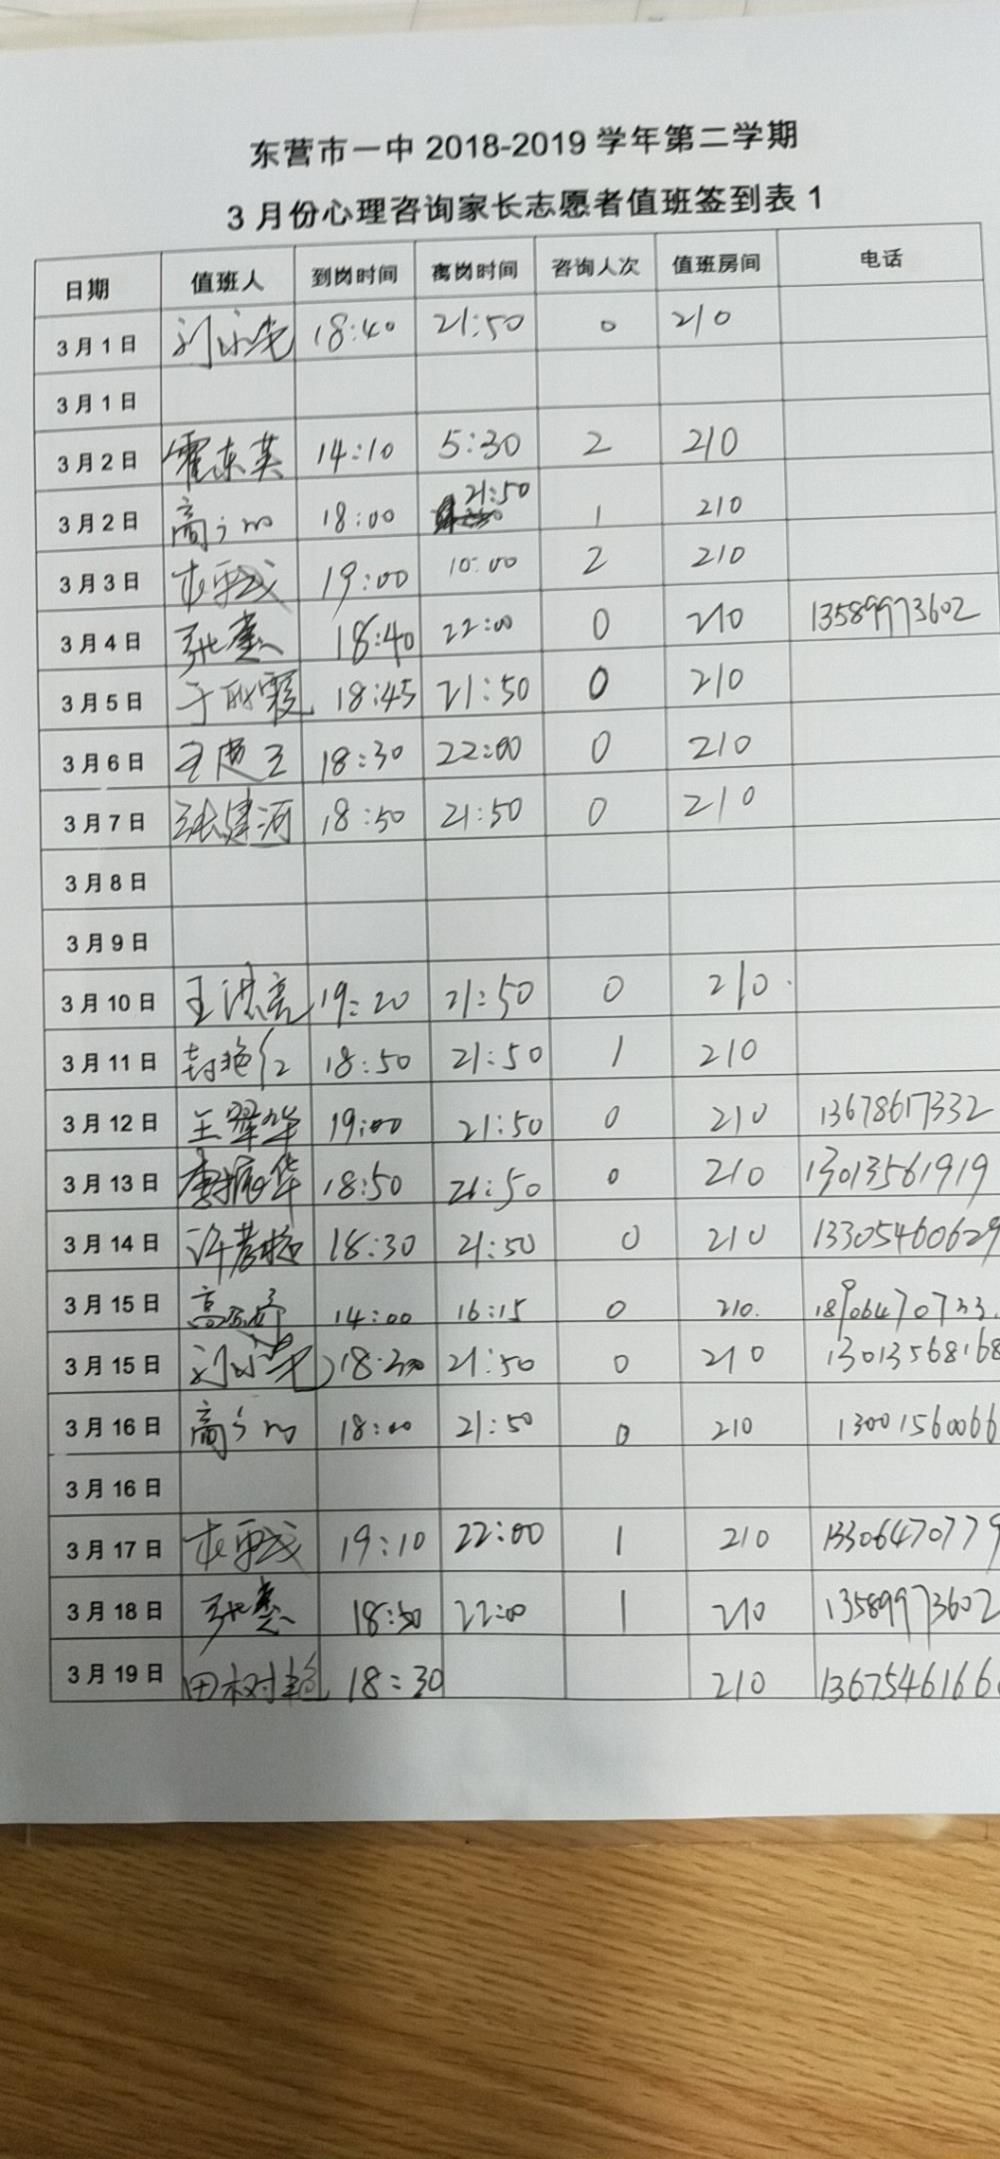 东营市一中 2018-2019 学年第二学期
3 月份心理咨询家长志愿者值班签到表 1
日期 值班人 到岗时间 离岗时间 咨询人次 值班房间 电话
3 月 1 日 18:40 21:50 0 210
3 月 1 日
3 月 2 日 霍东英 14:10 5:30 2 210
3 月 2 日 18:00 21:50 1 210
3 月 3 日 19:00 10:00 2 210
3 月 4 日 18:40 22:00 0 210 13589973602
3 月 5 日 18:45 21:50 0 210
3 月 6 日 18:30 22:00 0 210
3 月 7 日 张建河 18:50 21:50 0 210
3 月 8 日
3 月 9 日
3 月 10 日 王洪亮 19:20 21:50 0 210
3 月 11 日 封艳红 18:50 21:50 1 210
3 月 12 日 王翠华 19:00 21:50 0 210 13678617332
3 月 13 日 李振华 18:50 21:50 0 210 13013561919
3 月 14 日 18:30 21:50 0 210 13305460629
3 月 15 日 14:00 16:15 0 210.
3 月 15 日 18:30 21:50 0 210 13013568168
3 月 16 日 18:00 21:50 0 210 13001560066
3 月 16 日
3 月 17 日 19:10 22:00 1 210 13306470779
3 月 18 日 18:50 22:00 1 210 13589973602
3 月 19 日 田树艳 18:30 210 1367546166